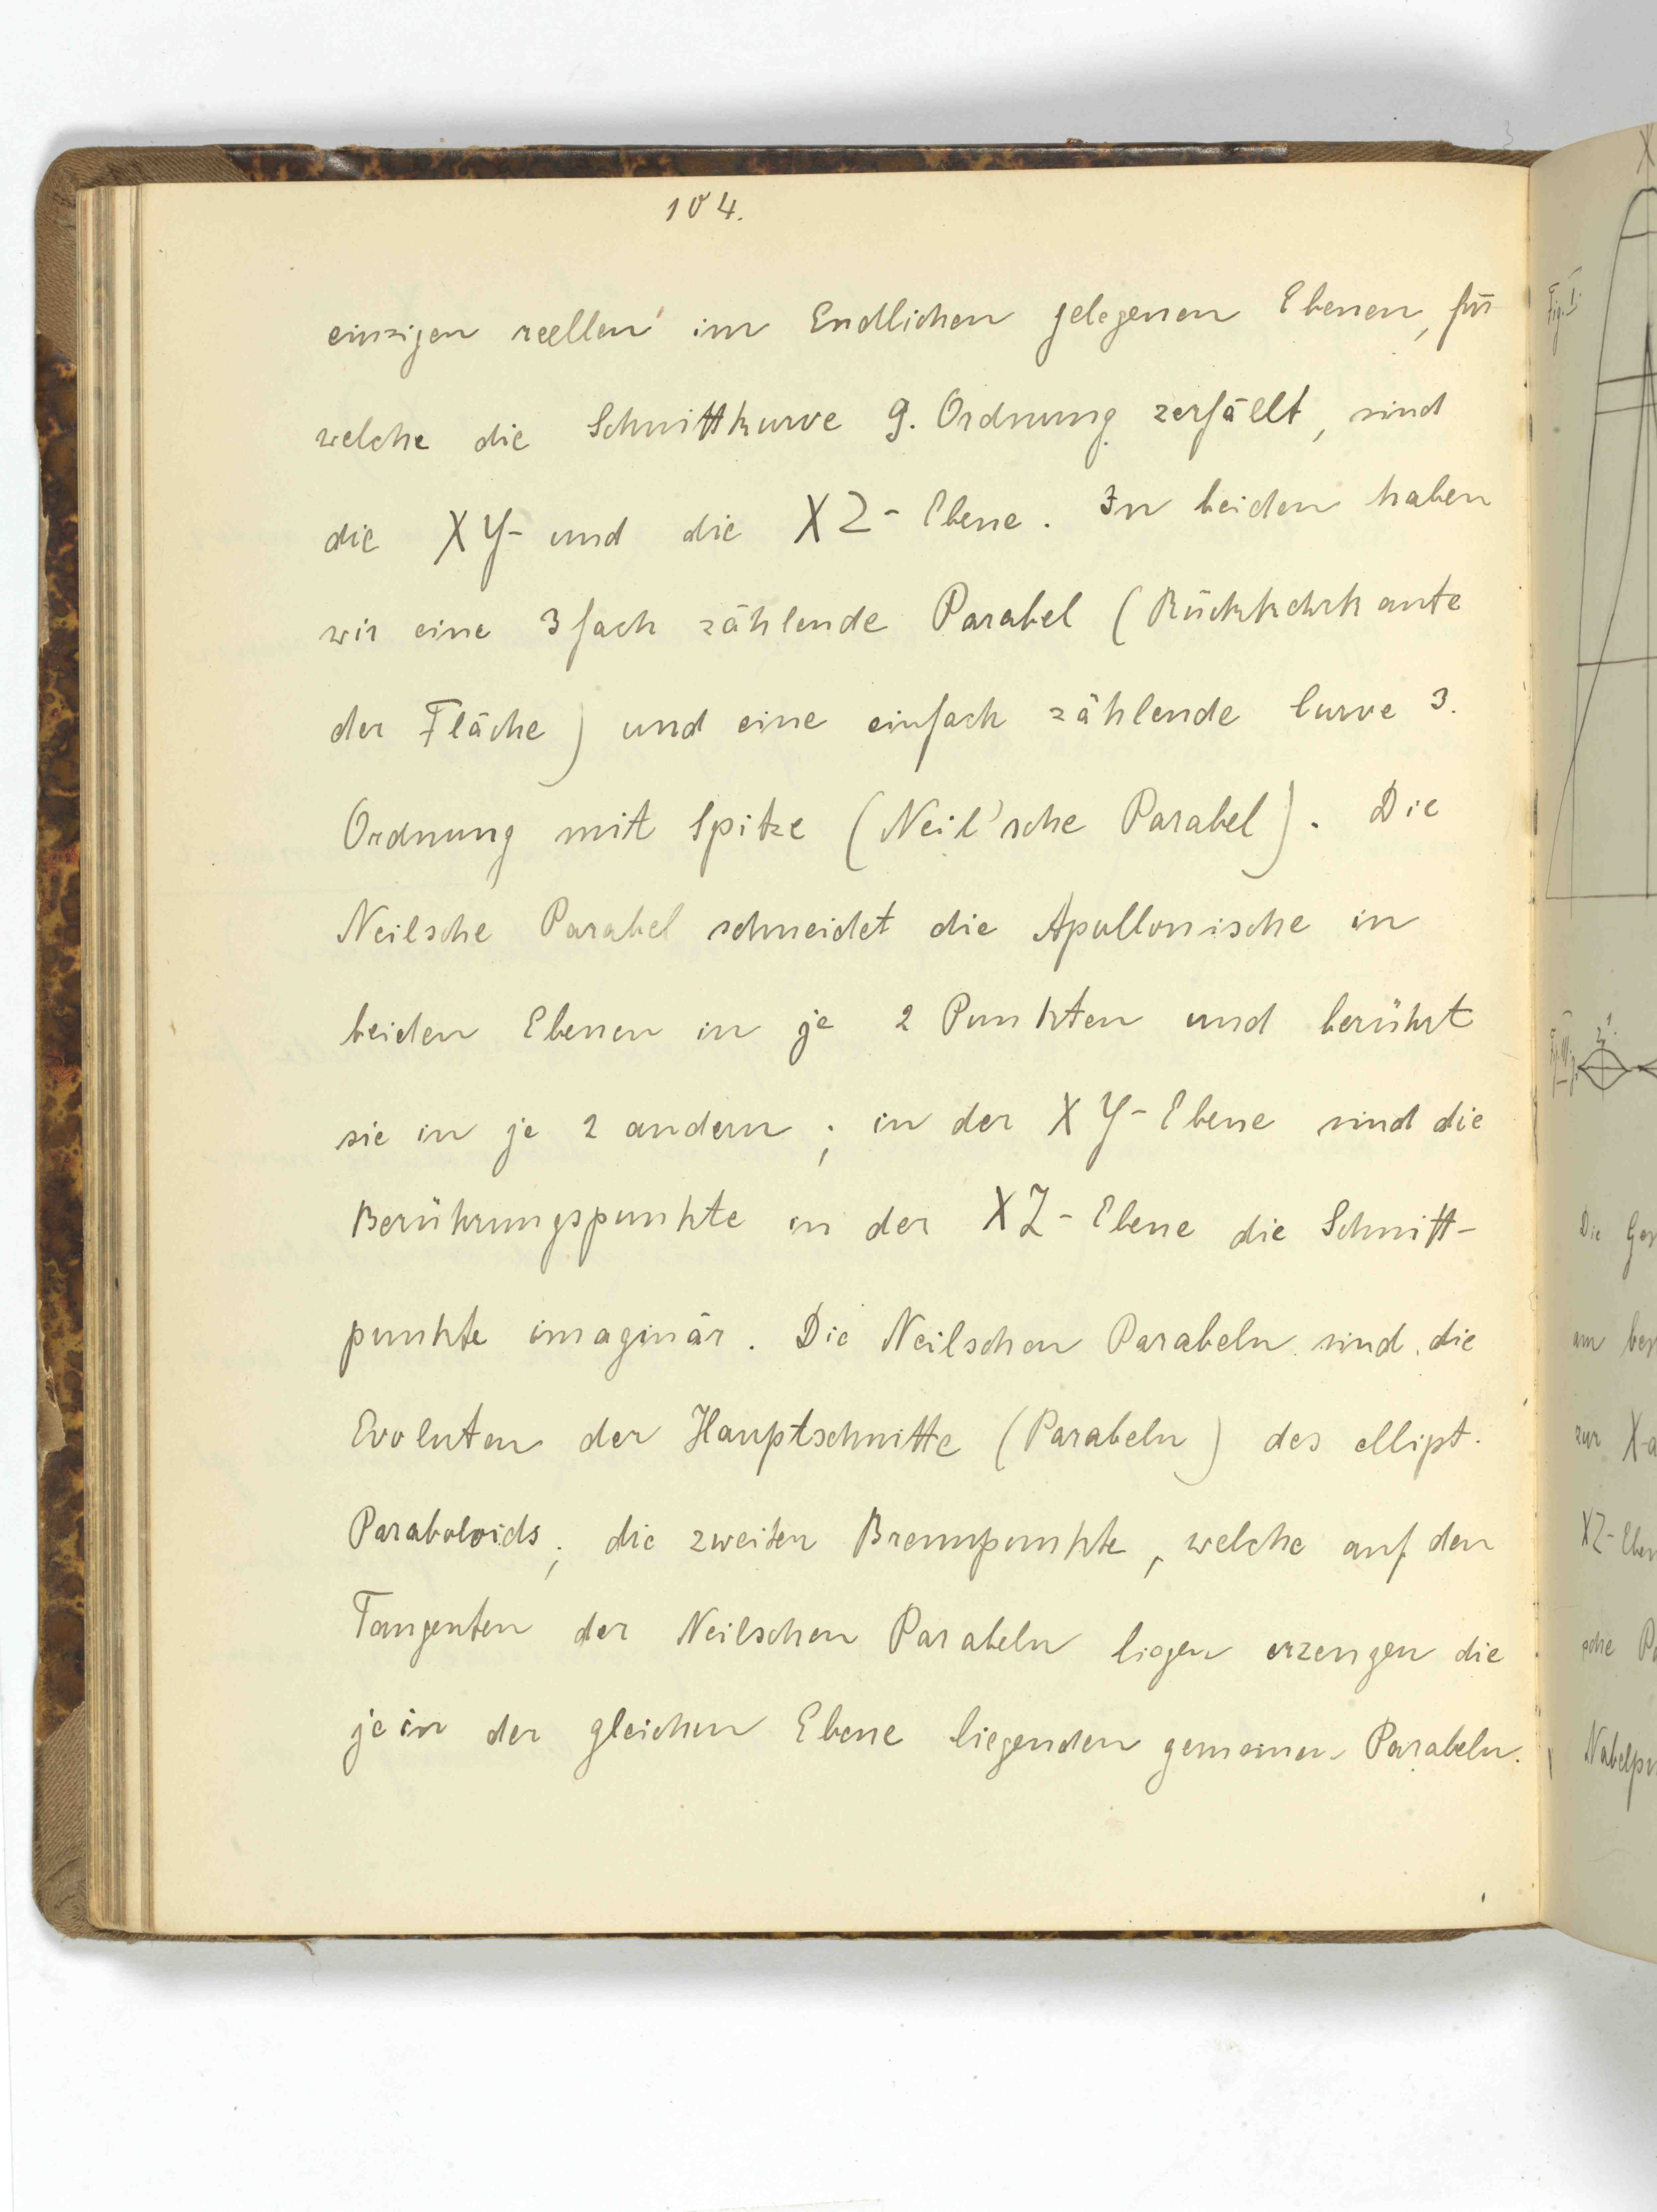 104.
einzigen reellen im Endlichen gelegenen Ebenen, für
welche die Schnittkurve 9. Ordnung zerfällt, sind
die XY- und die XZ-Ebene. In beiden haben
wir eine 3fach zählende Parabel (Rückkehrkante
der Fläche) und eine einfach zählende Curve 3.
Ordnung mit Spitze (Neil'sche Parabel). Die
Neilsche Parabel schneidet die Apollonische in
beiden Ebenen in je 2 Punkten und berührt
sie in je 2 andern; in der XY-Ebene sind die
Berührungspunkte in der XZ-Ebene die Schnitt-
punkte imaginär. Die Neilschen Parabeln sind die
Evoluten der Hauptschnitte (Parabeln) des ellipt.
Paraboloids; die zweiten Brennpunkte, welche auf den
Tangenten der Neilschen Parabeln liegen erzeugen die
je in der gleichen Ebene liegenden gemeinen Parabeln.
X
Fig. I.
Die
zur
XZ-Eben